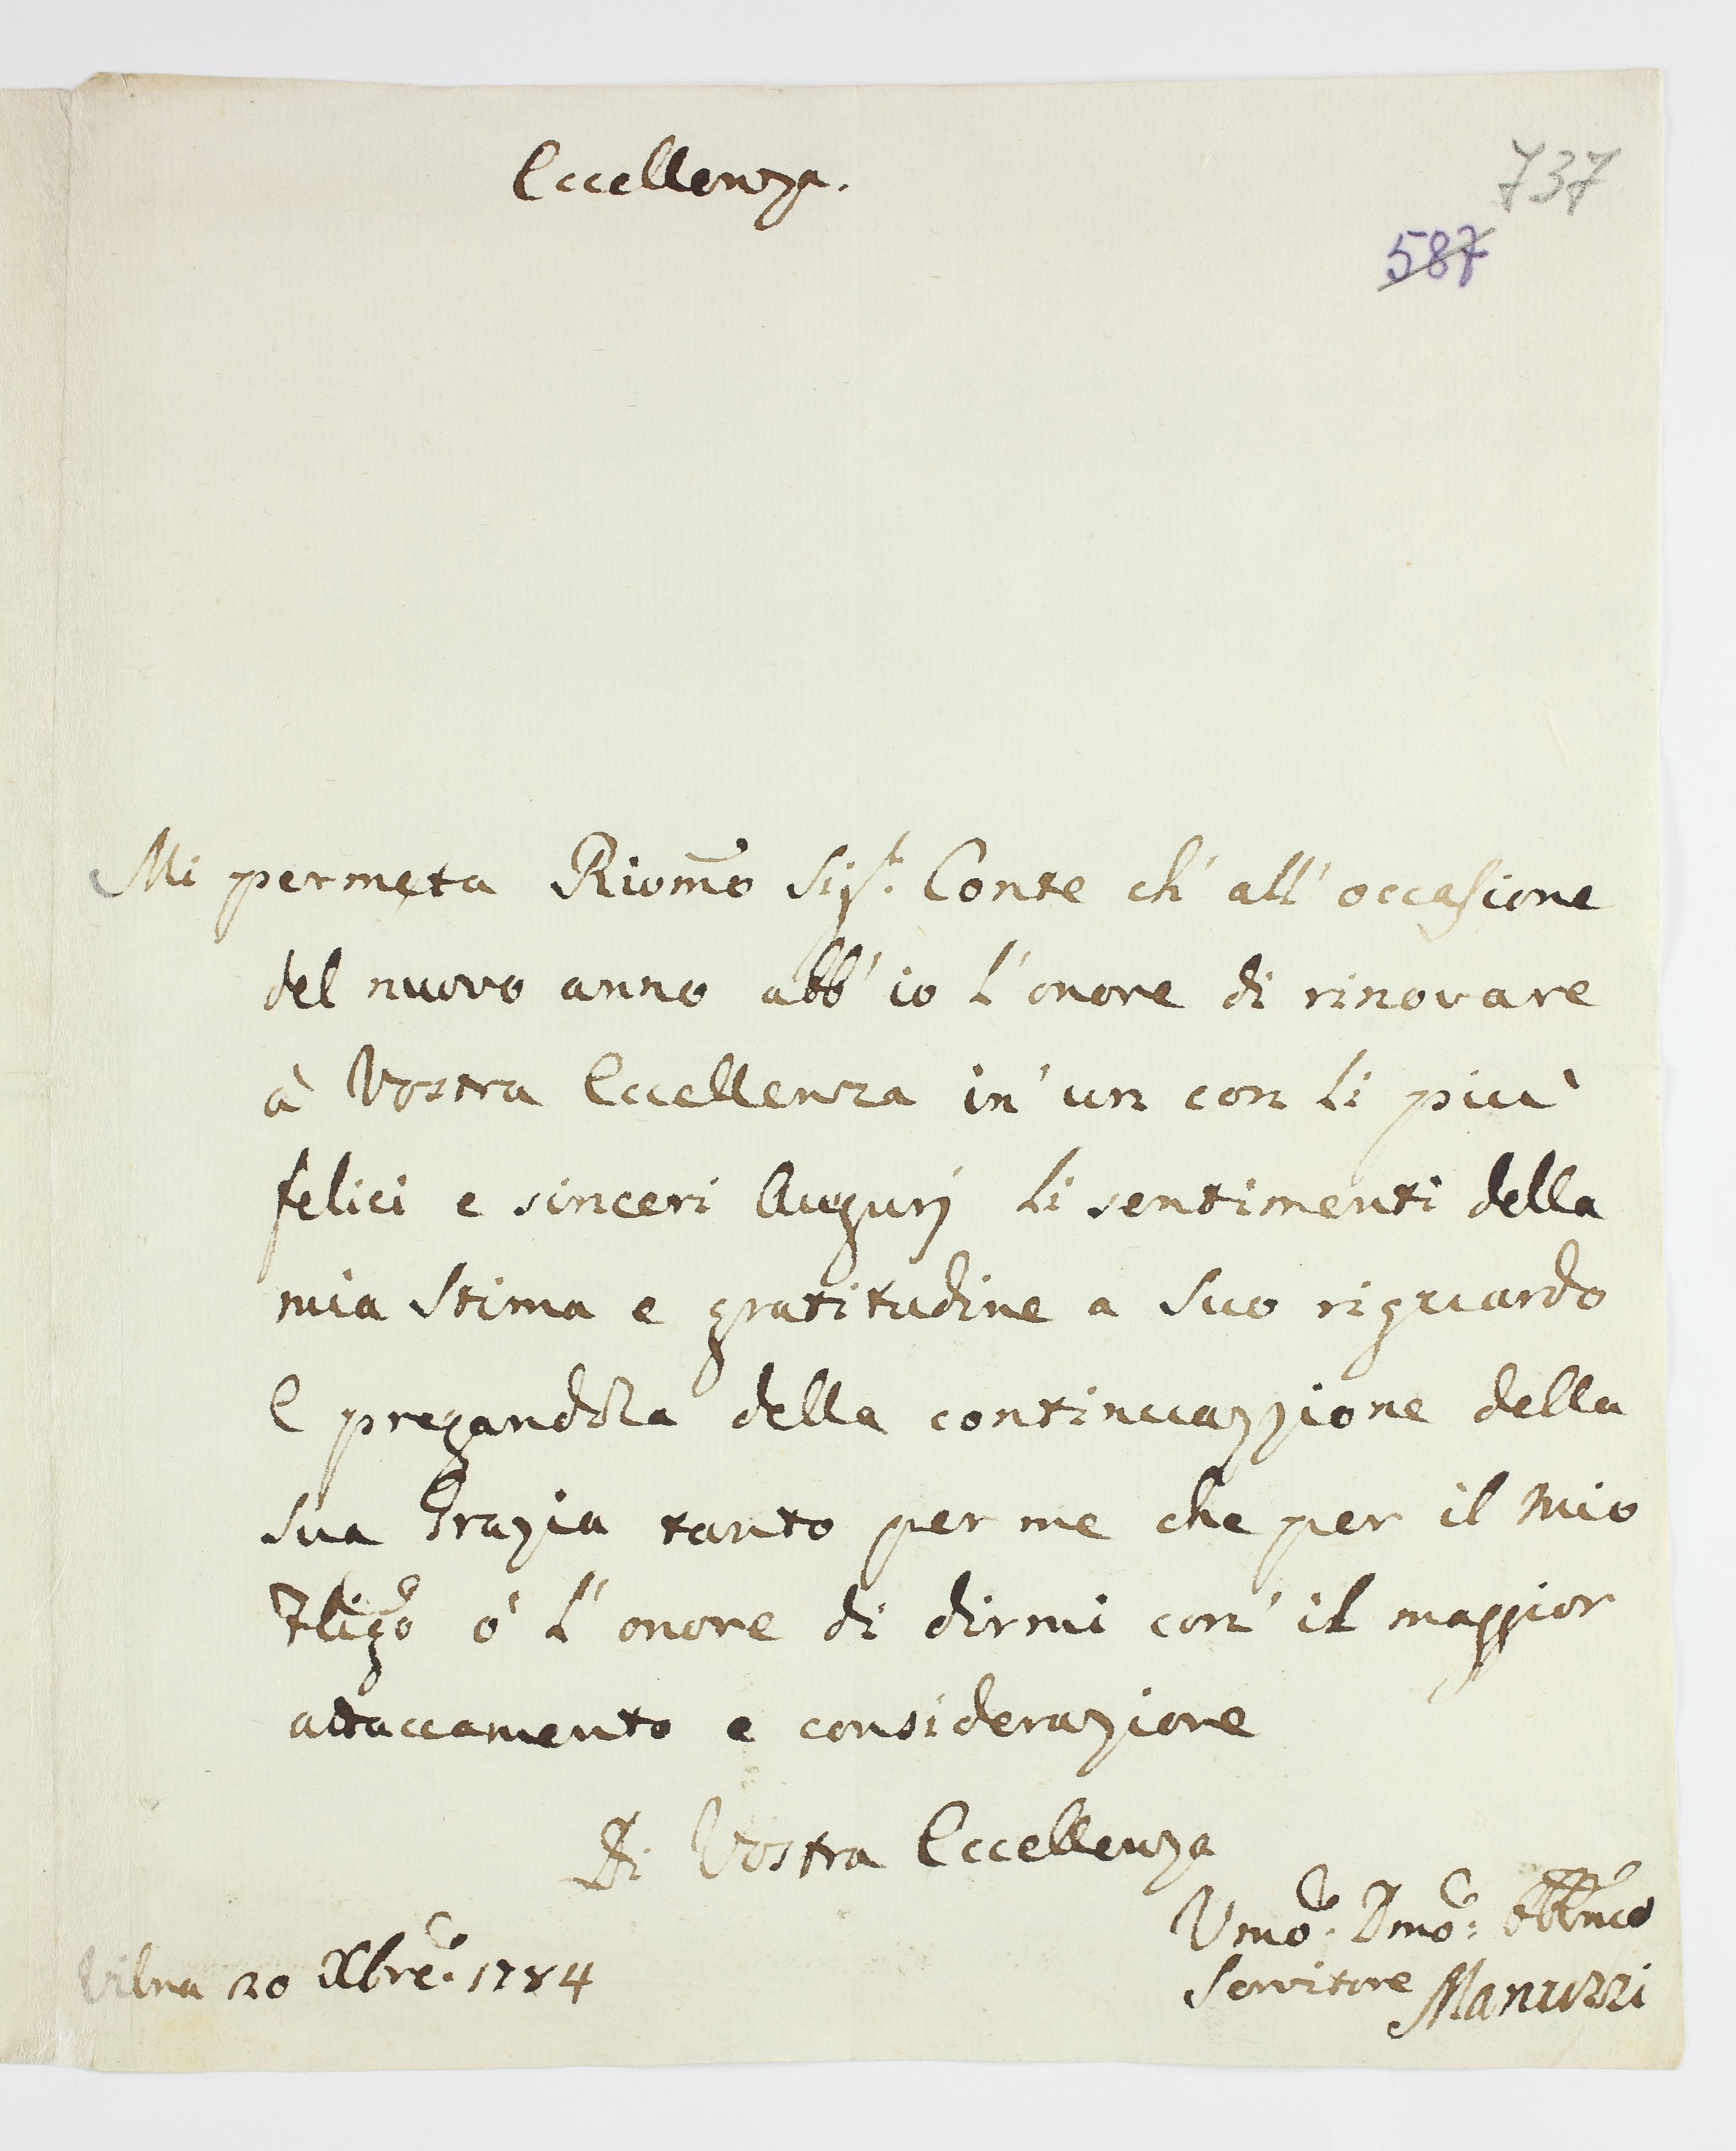 Eccellenza.
737
587
Mi permeta Riv̄m̄o Sigr. Conte ch' all' occasione
del nuovo anno abb' io l' onore di rinovare
à Vostra Eccellenza in' un con li più
felici e sinceri Augurj li sentimenti della
mia Stima e gratitudine a Suo riguardo
E pregandola della continuazzione della
Sua Grazia tanto per me che per il mio
ó l' onore di dirmi con' il maggior
attaccamento e considerazione
Di Vostra Eccellenza
Vmo. Dmo: Obbmo
Servitore Manuzzi
Vilna 20 Xbre. 1784